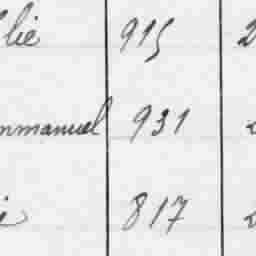 lie 915 2
mmanuel 931
i 817